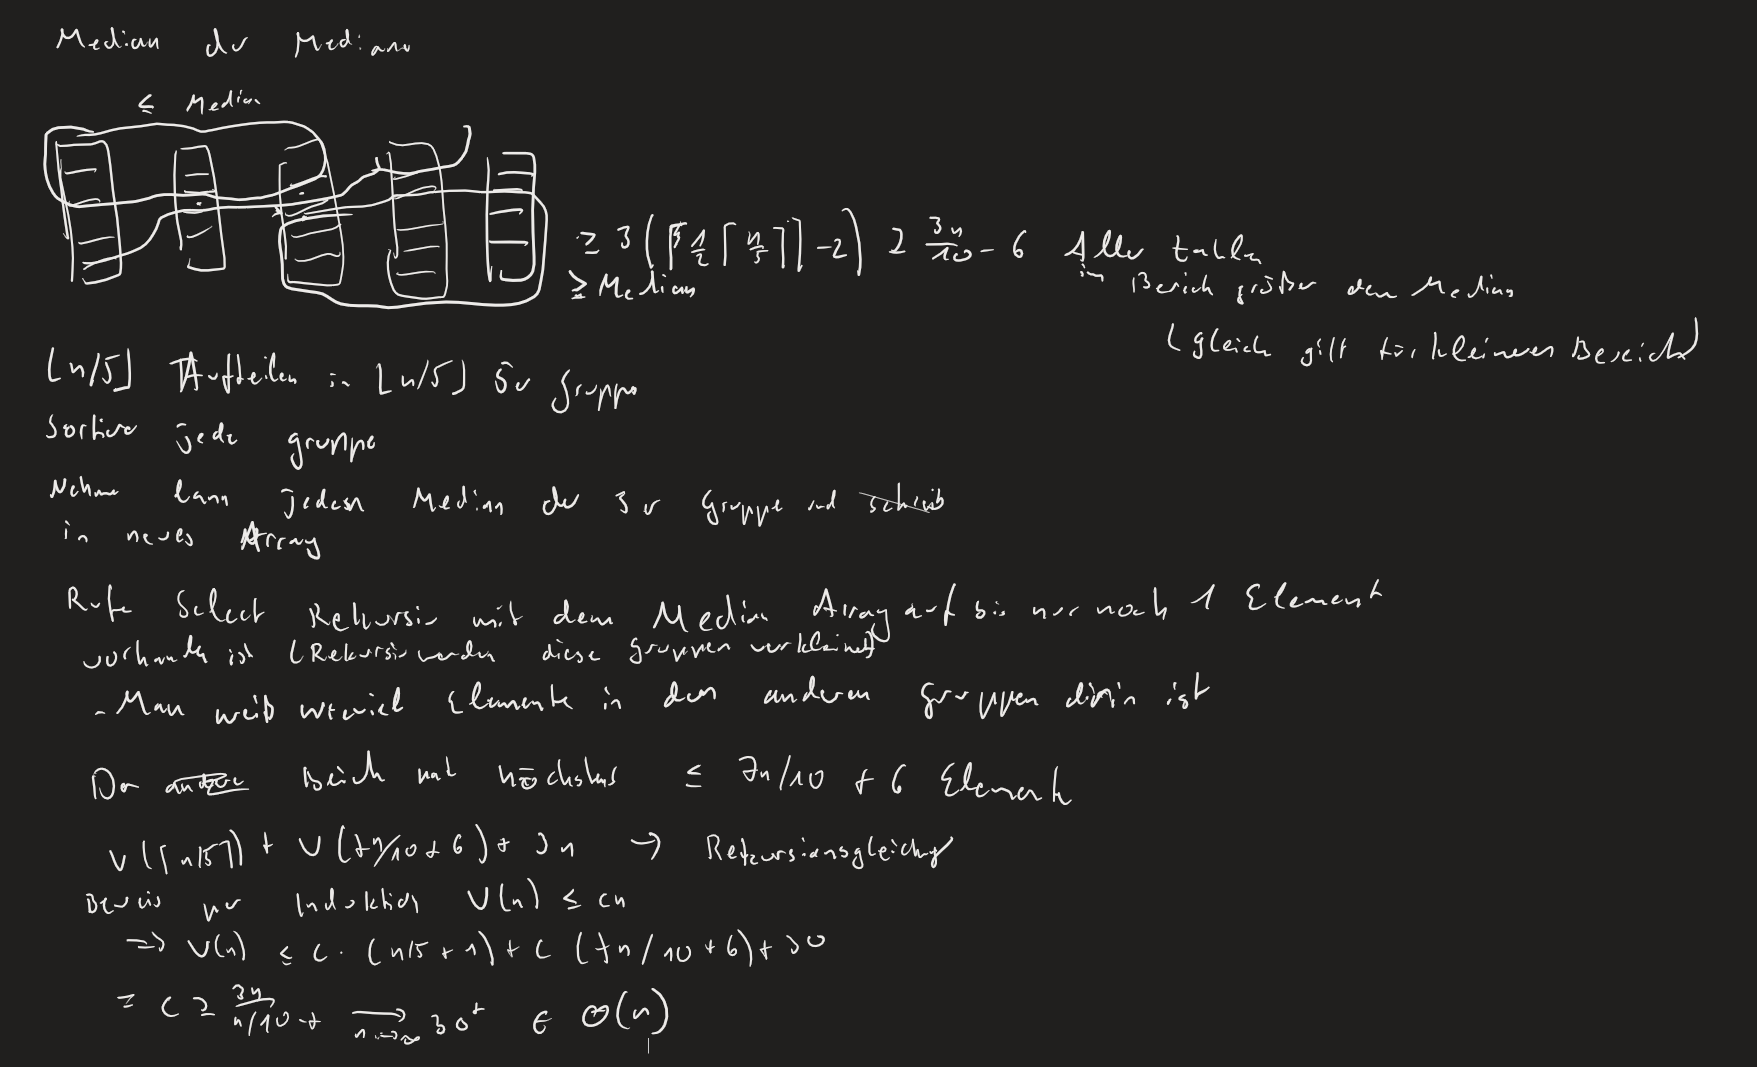 Median der Mediane
≤ Median
≥ 3(⌈1/2⌈n/5⌉⌉-2) ≥ 3n/10 - 6 Aller Zahlen
≥ Median
im Bereich größer dem Median
(gleich gilt für kleineren Bereich)
⌊n/5⌋ Aufteilen in ⌊n/5⌋ 5er gruppe
Sortiere jede gruppe
Nehme dann jeden Median der 5er Gruppe und schreib
in neues Array
Rufe Select Rekursiv mit dem Median Array auf bis nur noch 1 Element
vorhanden ist (Rekursiv werden diese gruppen verkleinert)
- Man weiß wieviel Elemente in den anderen gruppen drin ist
Der Bereich hat höchstens ≤ 7n/10 + 6 Elemente
V(⌈n/5⌉) + V(7n/10 + 6) + 3n → Rekursionsgleichung
Beweis per Induktion V(n) ≤ cn
⇒ V(n) ≤ c · (n/5 + 1) + c (7n/10 + 6) + 3n
= c ≥ 3n / n/10 - 7 →n→∞ 30+ ∈ O(n)